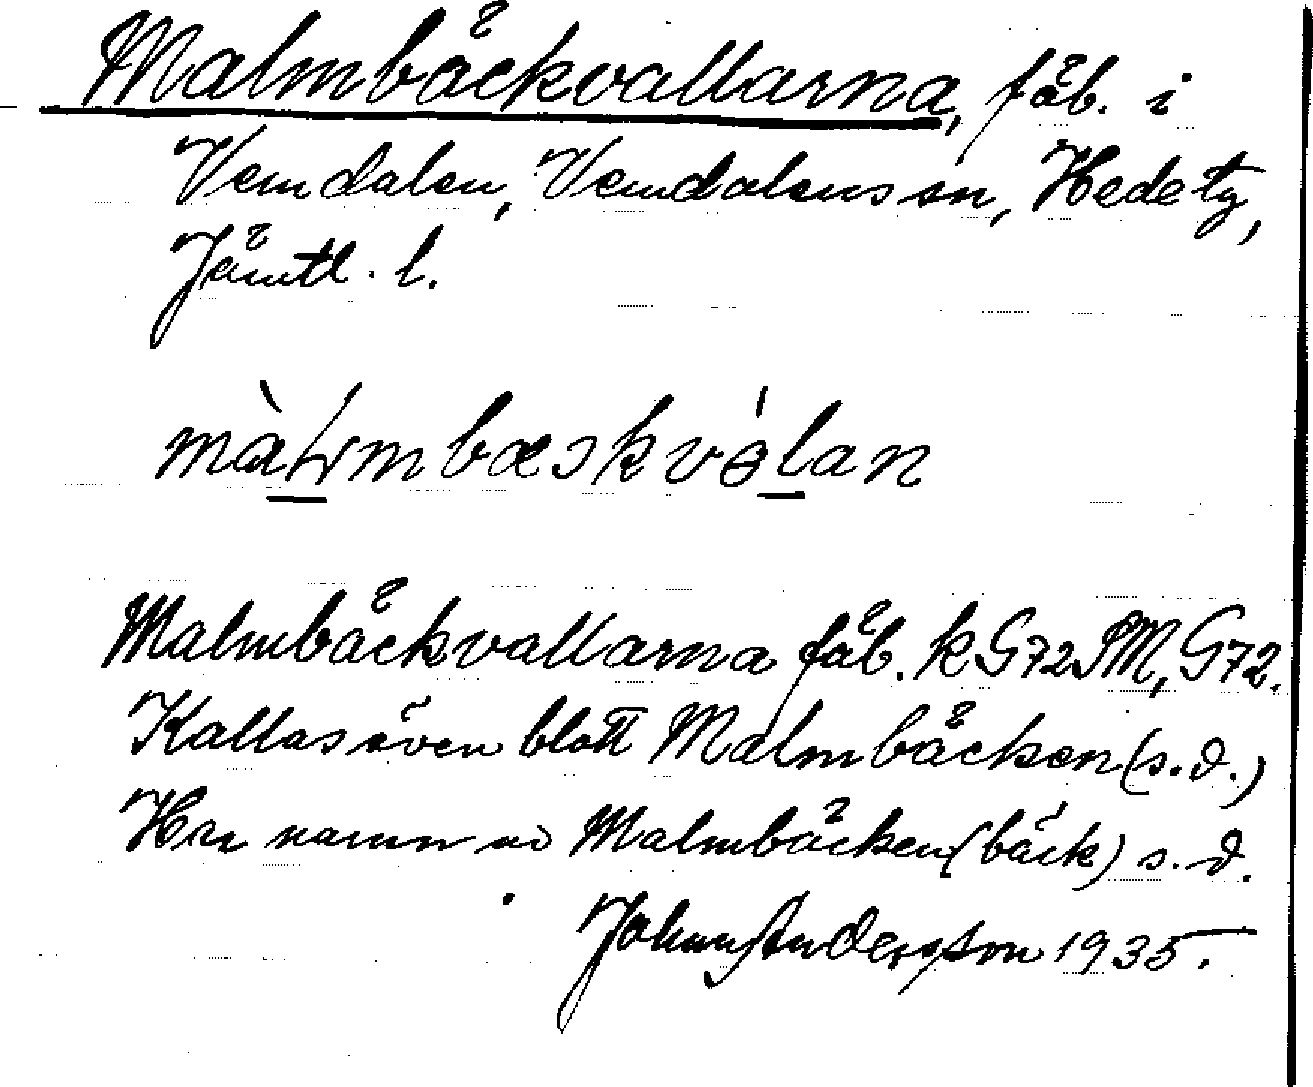 Malmbäckvallarna, fäb. i
Vemdalen, Vemdalens sn, Hede tg,
Jämtl. l.
Malmbäckvallarna fäb. k G72SM, G72.
Kallas även blott Malmbäcken (s.d.)
Har namn av Malmbäcken (bäck) s.d.
Johnny Andersson 1935.